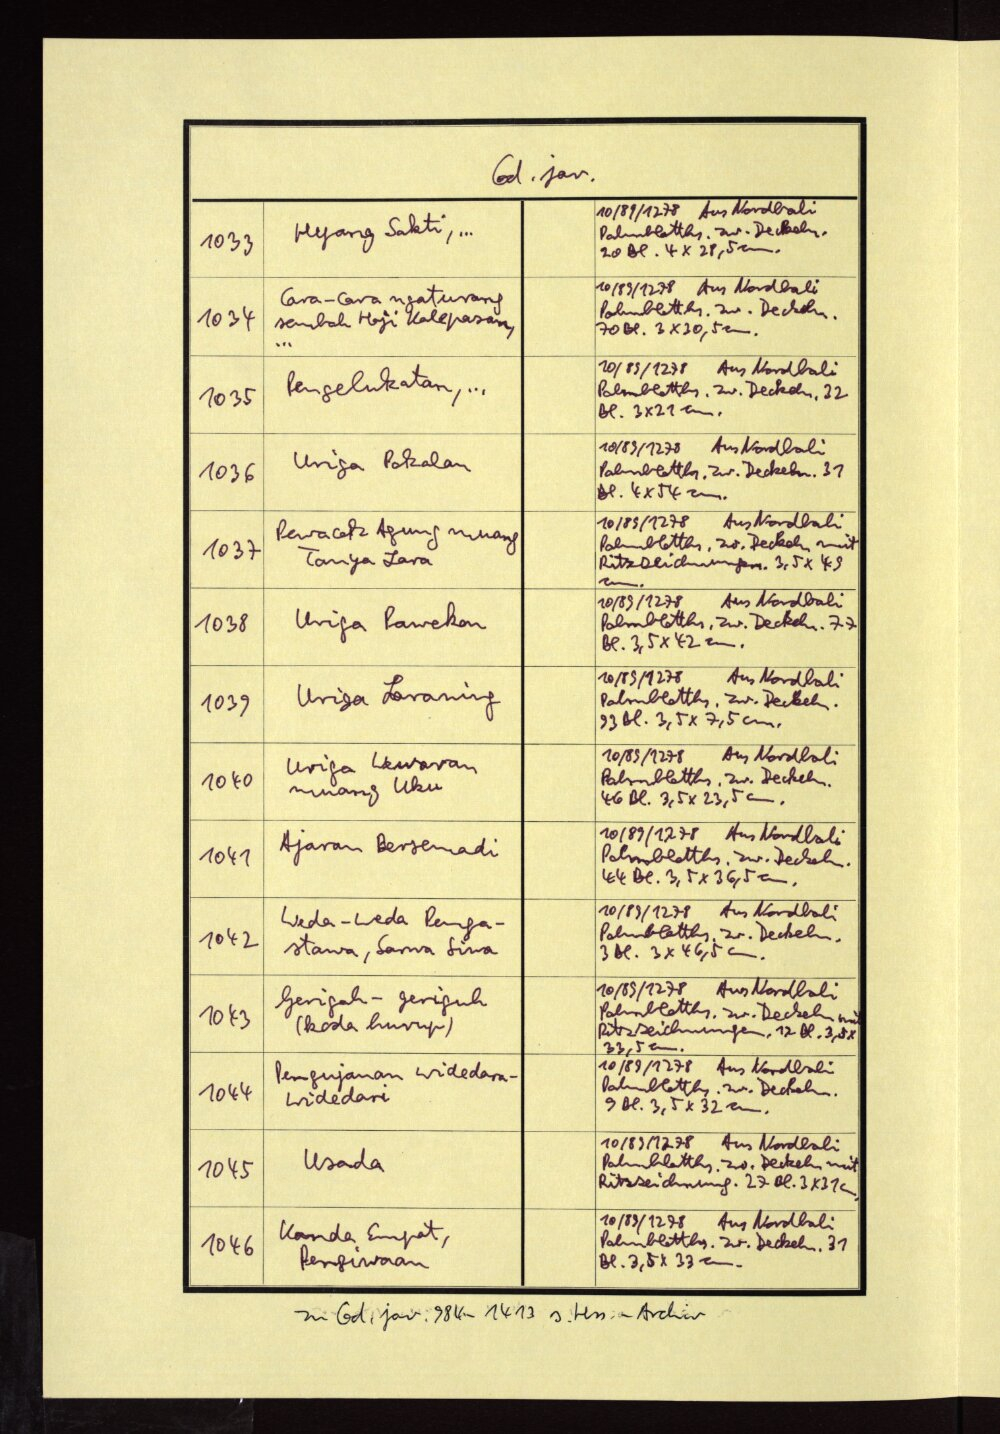 Cod. jav.
1033
Hyang Sakti, ...
10/89/1278 Aus Nordbali
Palmblatths. zw. Deckeln.
20 Bl. 4 x 28,5 cm.
1034
Cara-Cara ngaturang
sembah Haji Kalepasan,
...
10/89/1278 Aus Nordbali
Palmblatths. zw. Deckeln.
70 Bl. 3 x 30,5 cm.
1035
Pengelukatan, ...
10/89/1278 Aus Nordbali
Palmblatths. zw. Deckeln. 32
Bl. 3x21 cm.
1036
Uriga Pakalan
10/89/1278 Aus Nordbali
Palmblatths. zw. Deckeln. 31
Bl. 4 x 54 cm.
1037
Pewacak Agung muang
Tanya Lara
10/89/1278 Aus Nordbali
Palmblatths. zw. Deckeln mit
Ritzzeichnungen. 3,5 x 49
cm.
1038
Uriga Pawekon
10/89/1278 Aus Nordbali
Palmblatths. zw. Deckeln. 77
Bl. 3,5 x 42 cm.
1039
Uriga Laraning
10/89/1278 Aus Nordbali
Palmblatths. zw. Deckeln.
93 Bl. 3,5 x 7,5 cm.
1040
Uriga Wewaran
muang Uku
10/89/1278 Aus Nordbali
Palmblatths. zw. Deckeln.
46 Bl. 3,5 x 23,5 cm.
1041
Ajaran Bersemadi
10/89/1278 Aus Nordbali
Palmblatths. zw. Deckeln.
44 Bl. 3,5 x 36,5 cm.
1042
Weda-Weda Penga-
stawa, Sarwa Siwa
10/89/1278 Aus Nordbali
Palmblatths. zw. Deckeln.
3 Bl. 3 x 46,5 cm.
1043
Gerigah-geriguh
(koda hurup)
10/89/1278 Aus Nordbali
Palmblatths. zw. Deckeln mit
Ritzzeichnungen. 12 Bl. 3,5 x
33,5 cm.
1044
Pengujanan Widedara-
Widedari
10/89/1278 Aus Nordbali
Palmblatths. zw. Deckeln.
9 Bl. 3,5 x 32 cm.
1045
Usada
10/89/1278 Aus Nordbali
Palmblatths. zw. Deckeln mit
Ritzzeichnung. 27 Bl. 3 x 31 cm.
1046
Kanda Empat,
Pengiwaan
10/89/1278 Aus Nordbali
Palmblatths. zw. Deckeln. 31
Bl. 3,5 x 33 cm.
zu Cod. jav. 984-1413 s. Hss.-Archiv